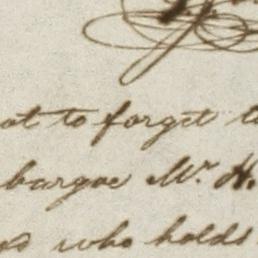 at to forget t
bargoe Mr. H.
who holds